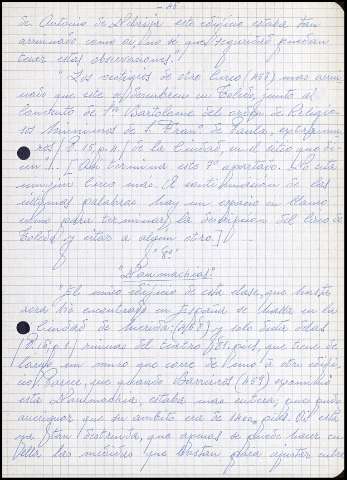 - 48 -
de Antonio de Nebrija este edificio estaba tan
arruinado como él, no se que seguridad puedan
tener estas observaciones."
"Los vestigios de otro Circo (468) mas arrui-
nado que este se descubren en Toledo junto al
Convento de Sn. Bartolomé del orden de Religio-
sos Minimos de S. Franco. de Paula, extramu-
ros de la Ciudad, en el sitio que di-
cen". [Aqui termina este 7º apartado. No cita
ningún Circo más. A continuación de las
últimas palabras hay un espacio en blanco
como para terminar la descripción del Circo de
Toledo y citar a algun otro.]
"8º
"Naumachias"
"El unico edificio de esta clase, que hasta
aora se ha encontrado en España se halla en la
Ciudad de Merida y solo dista de las
ruinas del teatro 81 pies, que tiene de
largo un muro que corre de uno a otro edifi-
cio. Parece, que quando Barreiros (469) examinó
esta Naumachia, estaba mas entera, pues pudo
averiguar que su ambito era de pies. Oi está
ya tan destruida, que apenas se puede hacer en
ella las medidas que bastan para ajustar entre